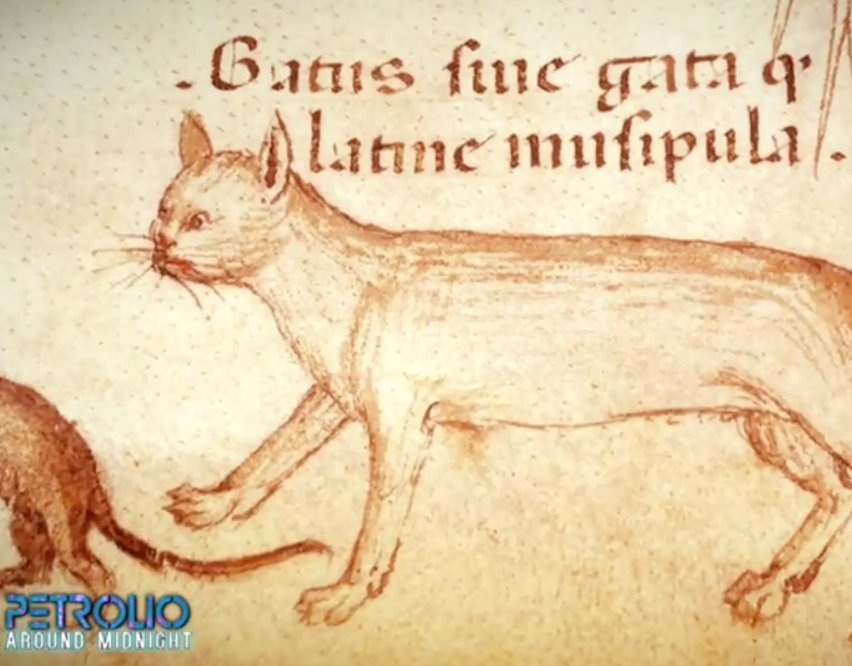 . Gatus siue gata q
latine musipula .
PETROLIO
AROUND MIDNIGHT